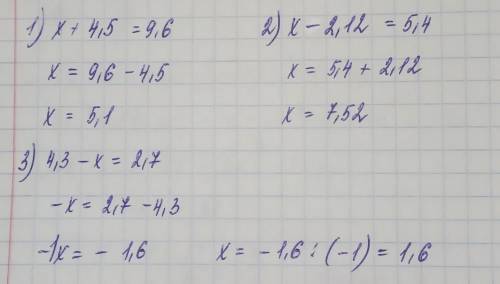 1) x + 4,5 = 9,6
x = 9,6 - 4,5
x = 5,1
2) x - 2,12 = 5,4
x = 5,4 + 2,12
x = 7,52
3) 4,3 - x = 2,7
-x = 2,7 - 4,3
-1x = - 1,6
x = - 1,6 : (-1) = 1,6